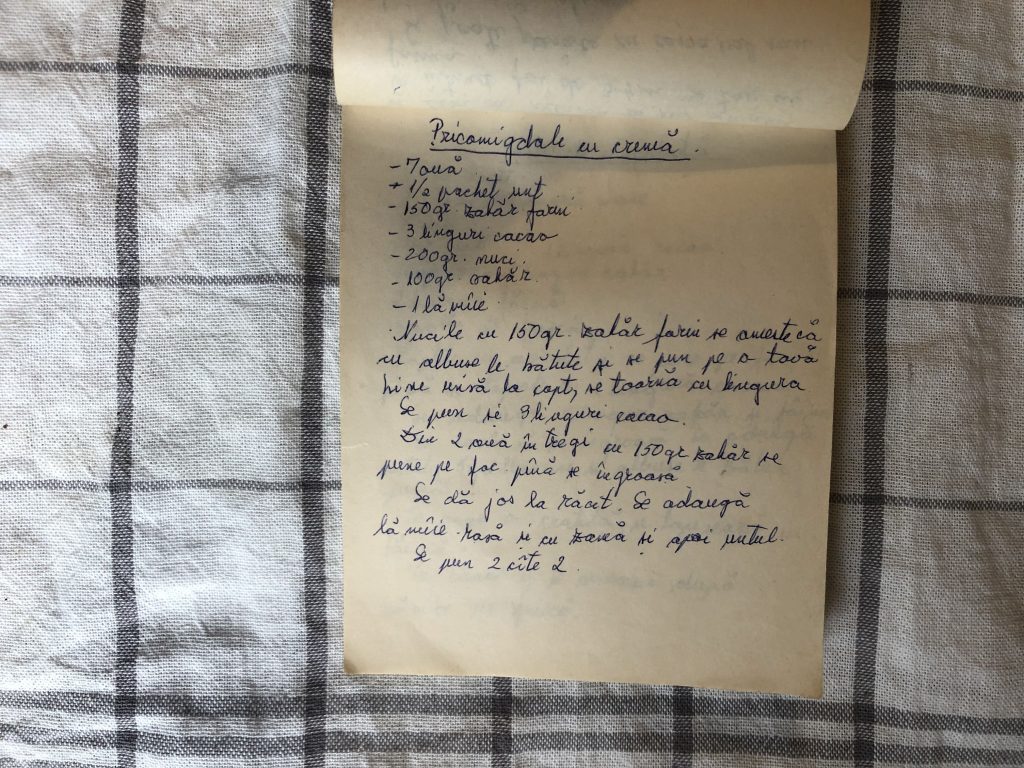 Pricomigdale cu cremă.
- 7 ouă
+ 1/2 pachet unt
- 150gr. zahăr farin
- 3 linguri cacao
- 200gr. nuci.
- 100gr. zahăr.
- 1 lămîie.
Nucile cu 150gr. zahăr farin se amestecă
cu albușele bătute și se pun pe o tavă
bine unsă la copt, se toarnă cu lingura
Se pun și 3 linguri cacao.
Din 2 ouă întregi cu 150gr zahăr se
pune pe foc pînă se îngroașă
Se dă jos la răcit. Se adaugă
lămîie rasă și cu zeamă și apoi untul.
Se pun 2 cîte 2.